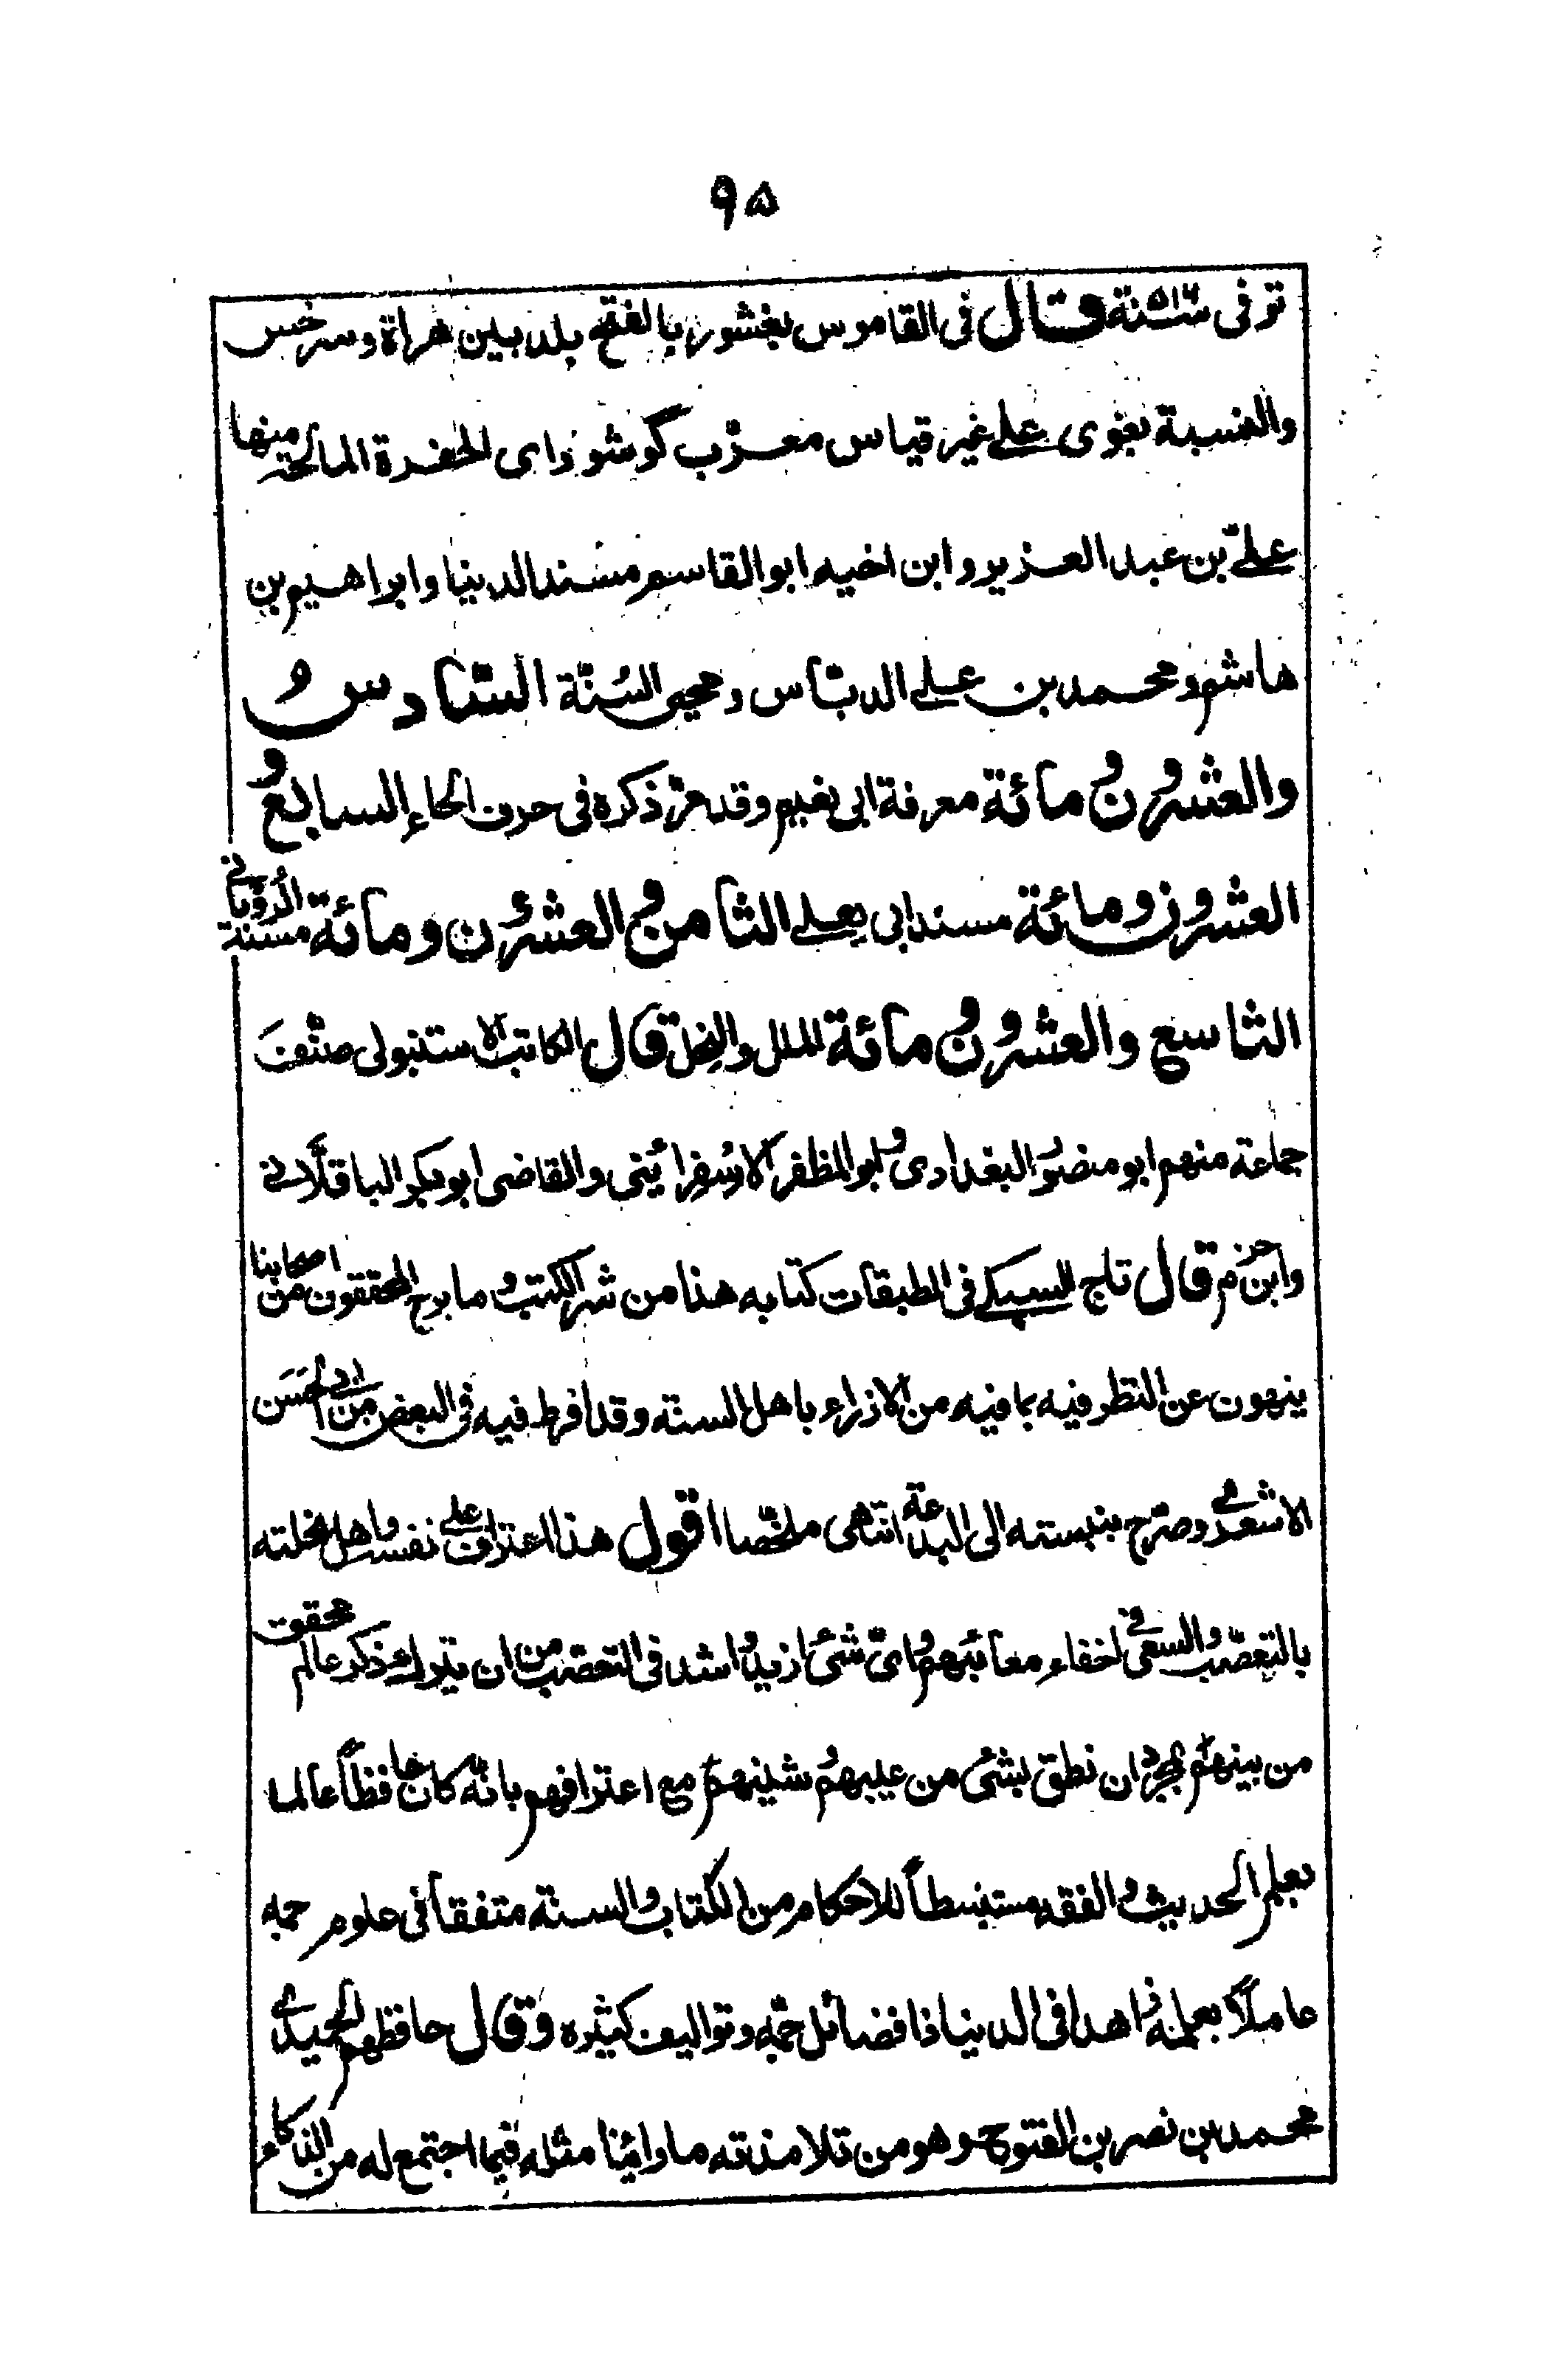 ٩٥
توفى سنة ٥١٦ قال فى القاموس بغشور بالفتح بلد بين هراة وسرخس
والنسبة بغوى على غير قياس معرّب كوشور اى الحفرة المالحة منها
علىّ بن عبد العزيز وابن اخيه ابو القاسم مسند الدنيا وابراهيم بن
هاشم ومحمد بن على الدبّاس ومحيى السُنّة السّادسُ
والعشرون ومائة معرفة ابى نعيم وقد مرّ ذكره فى حرف الحاء السابعُ و
العشرون ومائة مسند ابى يعلى الثامن والعشرون ومائة مسند الرُوْيانى
التاسع والعشرون ومائة الملل والنحل قال الكاتب الاستنبولى صنّفَ
جماعة منهم ابو منصور البغدادى وابو المظفر الاسْفرائينى والقاضى ابو بكر الباقلّانى
وابن حزم قال تاج السبكى فى الطبقات كتابه هذا من شر الكتب وما برح المحققون من اصحابنا
ينهون عن النظر فيه بما فيه من الازراء باهل السنة وقد افرط فيه فى البعض من ابى الحسَن
الاشعرى وصرّح بنسبته الى البدعة انتهى ملخّصا اقول هذا اعتراف على نفسه واهل نحلته
بالتعصّب والسعى فى اخفاء معائبهم واىّ شئ ازيد واشد فى التعصّب من ان يتولى ذكر عالم محقوق
من بينهم بمجرّد ان نطق بشئ من عيبهم وشينهم مع اعترافهم بانّه كان حافظاً عالما
بعلم الحديث والفقه مستنبطاً للاحكام من الكتاب والسنة متفقاً فى علوم جمة
عاملاً بعلمه زاهدا فى الدنيا ذا فضائل جمّه وتواليف كثيره وقال حافظهم الحميدى
محمد بن نصر بن الفتوح وهو من تلامذته ما راينا مثله فيما اجتمع له من الذكاء